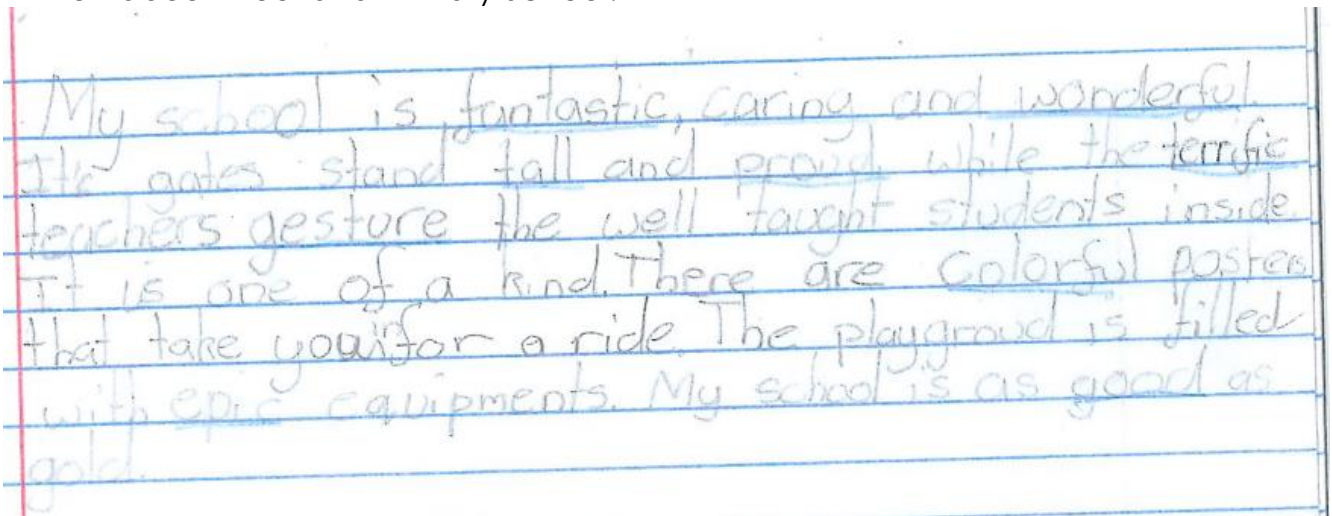 My school is fantastic, caring and wonderful.
It's gates stand tall and proud while the terrific
teachers gesture the well taught students inside
It is one of a kind. There are colorful posters
that take you in for a ride. The playgroud is filled
with epic equipments. My school is as good as
gold.